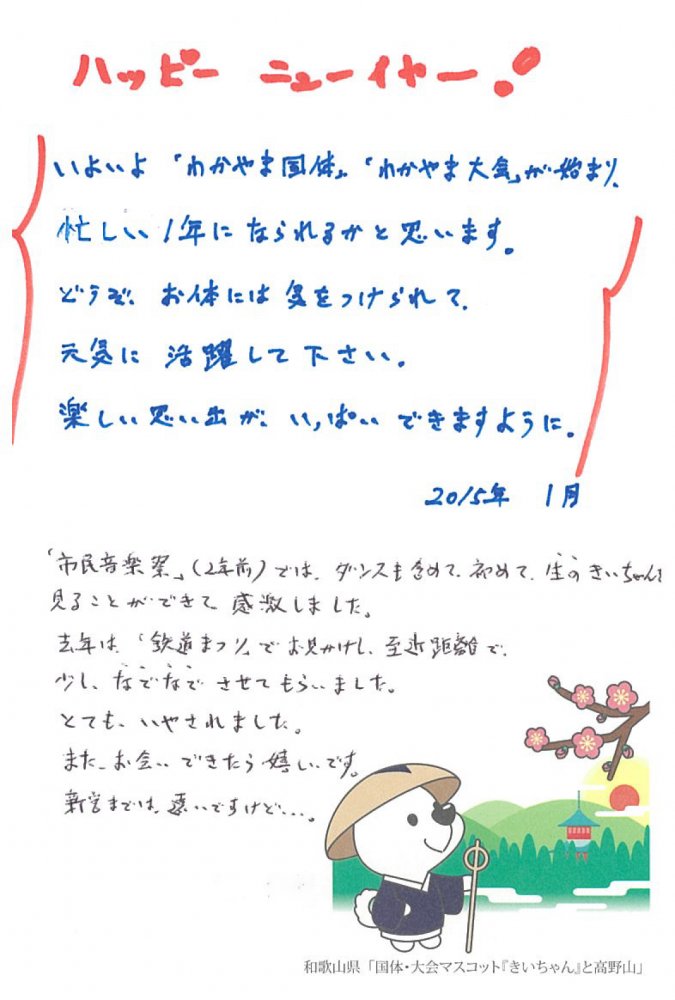 ハッピー ニューイヤー!
いよいよ「わかやま国体」、「わかやま大会」が始まり、
忙しい1年になられるかと思います。
どうぞ、お体には気をつけられて、
元気に活躍して下さい。
楽しい思い出が、いっぱいできますように。
2015年 1月
「市民音楽祭」(2年前)では、ダンスも含めて、初めて、生のきいちゃんを
見ることができて、感激しました。
去年は、「鉄道まつり」でお見かけし、至近距離で、
少し、なでなでさせてもらいました。
とても、いやされました。
また、お会いできたら嬉しいです。
新宮までは、遠いですけど・・・。
和歌山県「国体・大会マスコット『きいちゃん』と高野山」